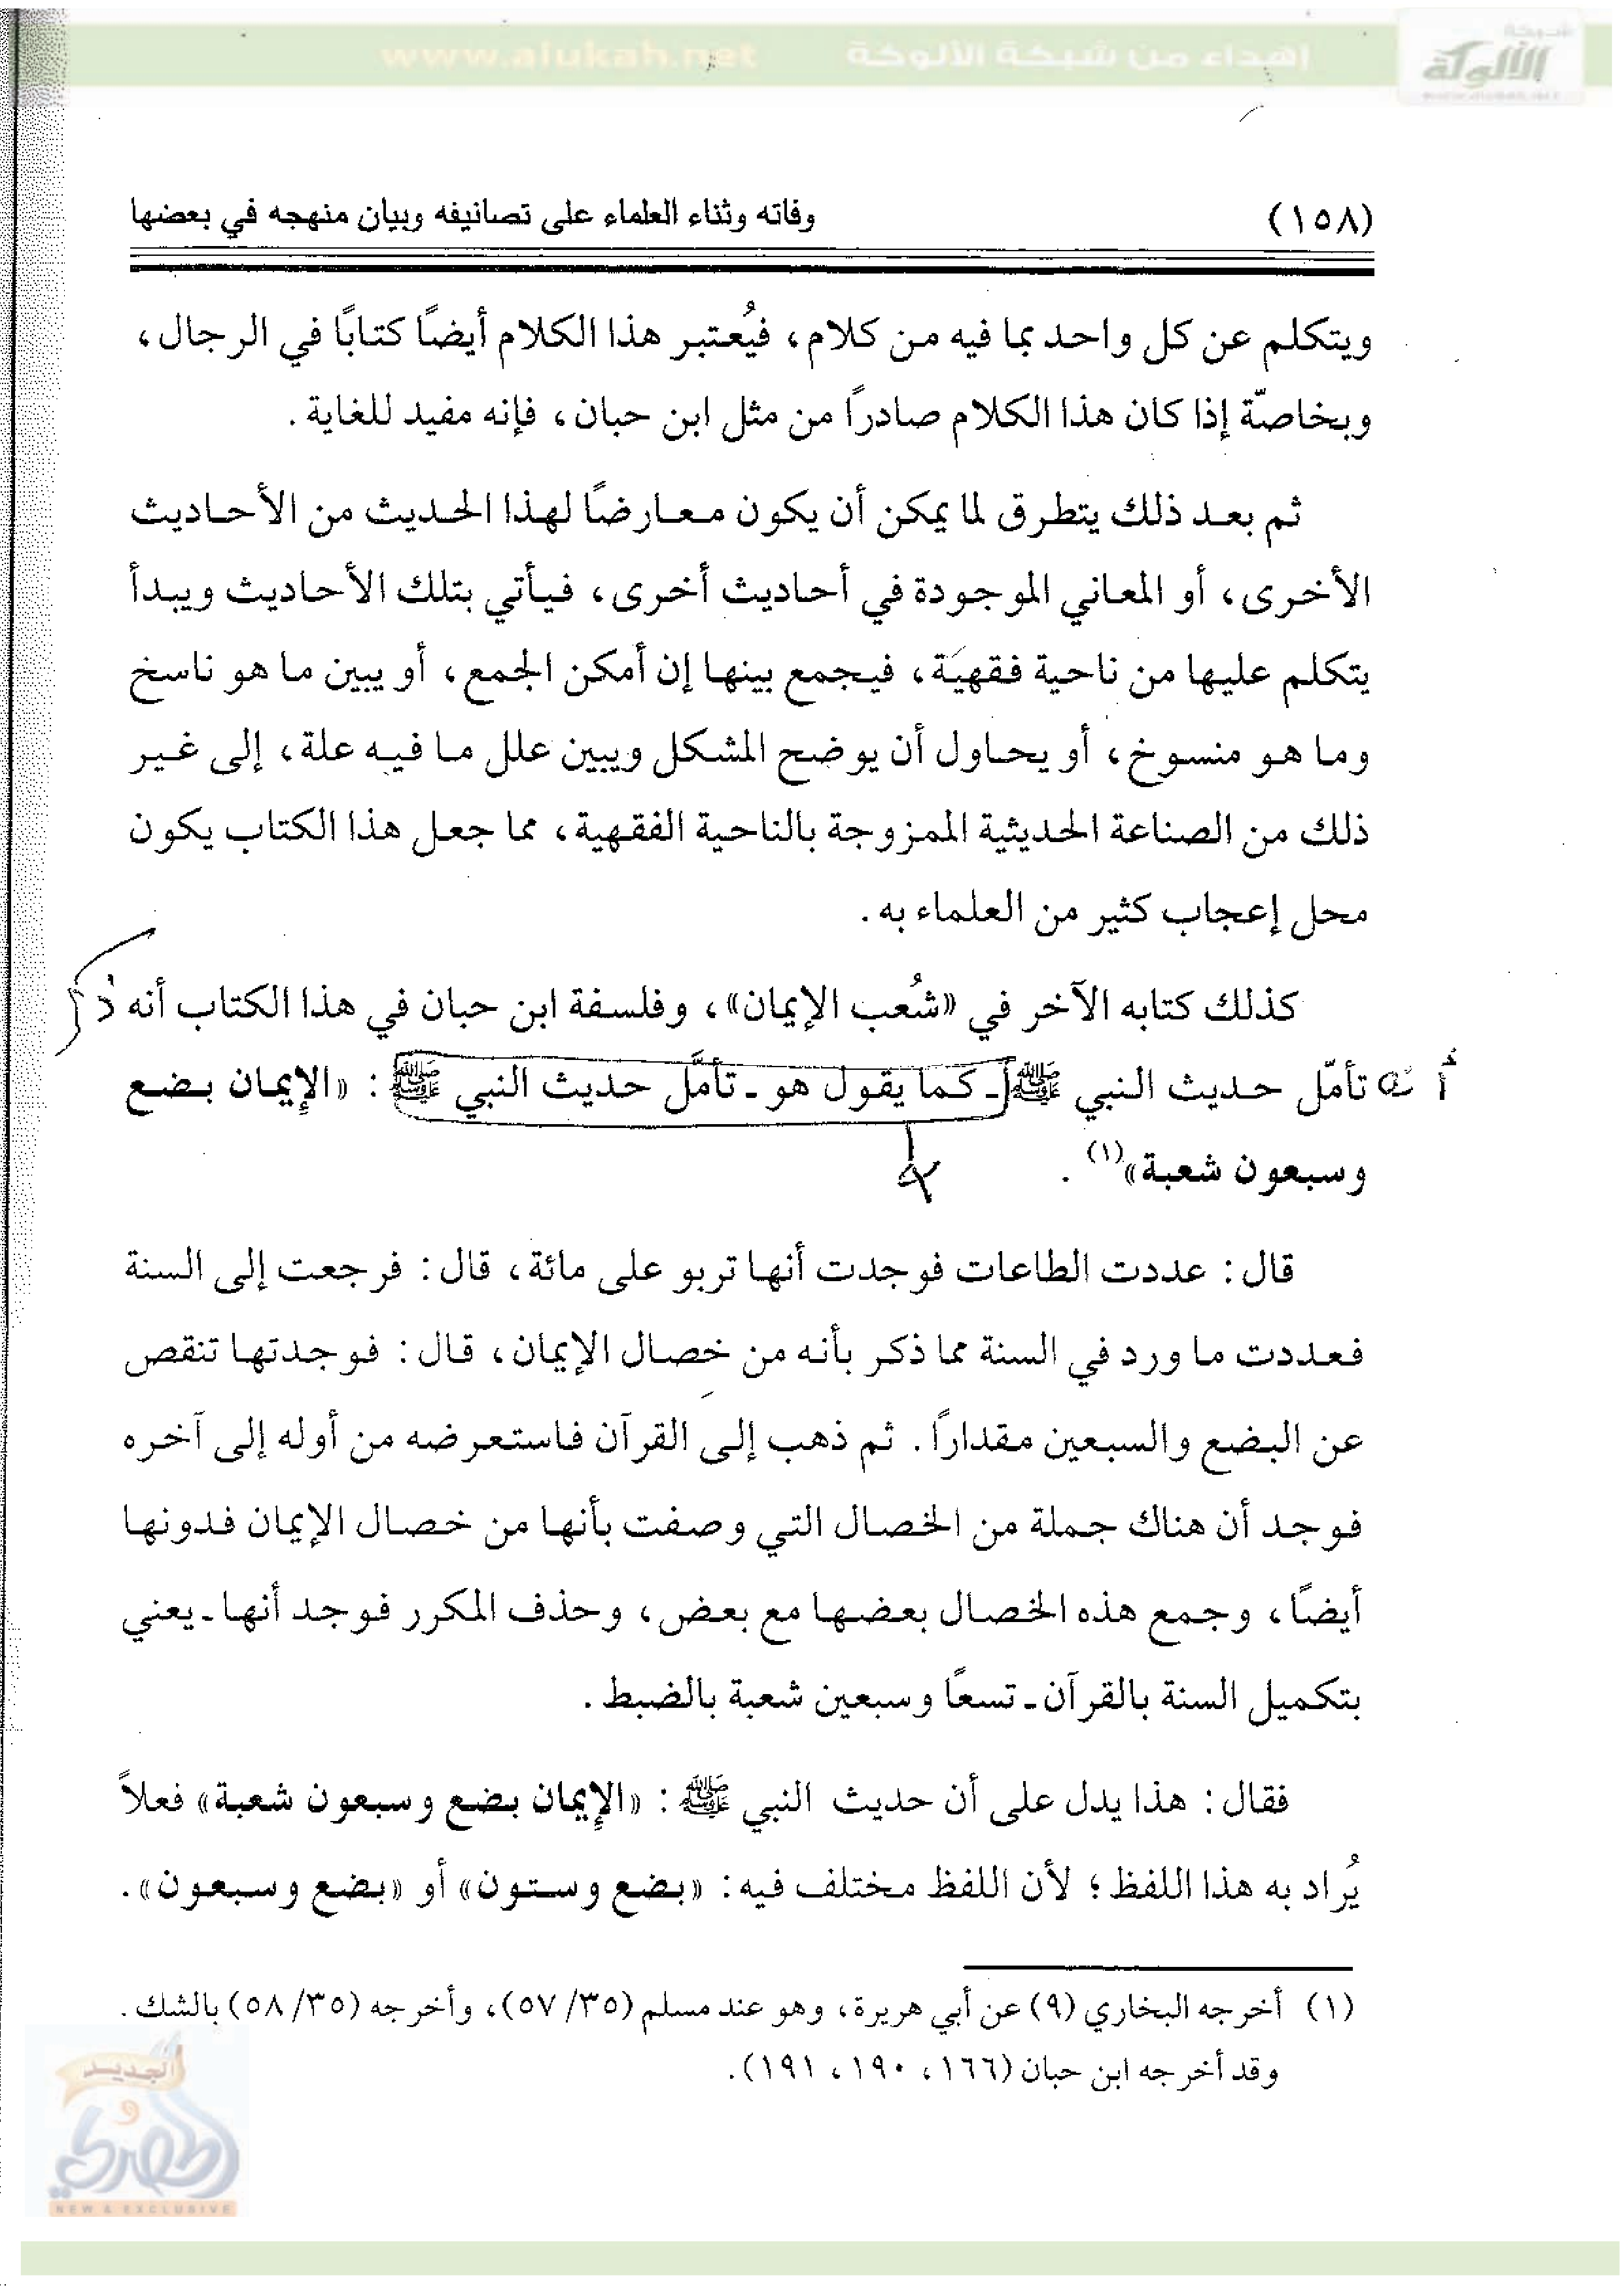 www.alukah.net إهداء من شبكة الألوكة
شبكة الألوكة
(١٥٨) وفاته وثناء العلماء على تصانيفه وبيان منهجه في بعضها
ويتكلم عن كل واحد بما فيه من كلام، فيُعتبر هذا الكلام أيضًا كتابًا في الرجال،
وبخاصّة إذا كان هذا الكلام صادرًا من مثل ابن حبان، فإنه مفيد للغاية.
ثم بعد ذلك يتطرق لما يمكن أن يكون معارضًا لهذا الحديث من الأحاديث
الأخرى، أو المعاني الموجودة في أحاديث أخرى، فيأتي بتلك الأحاديث ويبدأ
يتكلم عليها من ناحية فقهية، فيجمع بينها إن أمكن الجمع، أو يبين ما هو ناسخ
وما هو منسوخ، أو يحاول أن يوضح المشكل ويبين علل ما فيه علة، إلى غير
ذلك من الصناعة الحديثية الممزوجة بالناحية الفقهية، مما جعل هذا الكتاب يكون
محل إعجاب كثير من العلماء به.
كذلك كتابه الآخر في «شُعب الإيمان»، وفلسفة ابن حبان في هذا الكتاب أنه
تأمّل حديث النبي ﷺ ـ كما يقول هو ـ تأمَّل حديث النبي ﷺ: «الإيمان بضع
وسبعون شعبة»(١).
قال: عددت الطاعات فوجدت أنها تربو على مائة، قال: فرجعت إلى السنة
فعددت ما ورد في السنة مما ذكر بأنه من خصال الإيمان، قال: فوجدتها تنقص
عن البضع والسبعين مقدارًا. ثم ذهب إلى القرآن فاستعرضه من أوله إلى آخره
فوجد أن هناك جملة من الخصال التي وصفت بأنها من خصال الإيمان فدونها
أيضًا، وجمع هذه الخصال بعضها مع بعض، وحذف المكرر فوجد أنها ـ يعني
بتكميل السنة بالقرآن ـ تسعًا وسبعين شعبة بالضبط.
فقال: هذا يدل على أن حديث النبي ﷺ: «الإيمان بضع وسبعون شعبة» فعلاً
يُراد به هذا اللفظ؛ لأن اللفظ مختلف فيه: «بضع وستون» أو «بضع وسبعون».
(١) أخرجه البخاري (٩) عن أبي هريرة، وهو عند مسلم (٣٥/ ٥٧)، وأخرجه (٣٥/ ٥٨) بالشك.
وقد أخرجه ابن حبان (١٦٦، ١٩٠، ١٩١).
الجديد
و
الحصري
NEW & EXCLUSIVE